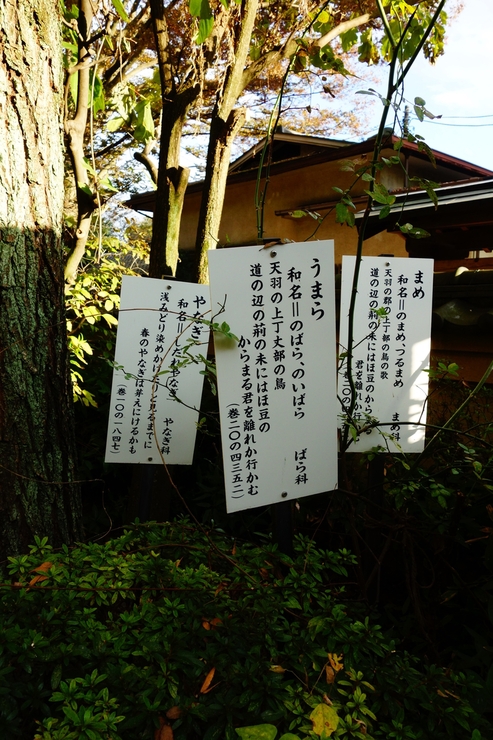 まめ
和名＝のまめ、つるまめ
まめ科
天羽の郡の上丁部の鳥の歌
道の辺の荊の末にはほ豆の
からまる君を離れか行か
うまら
和名＝のばら、のいばら
ばら科
天羽の上丁丈部の鳥
道の辺の荊の末にはほ豆の
からまる君を離れか行かむ
（巻二〇の四三五二）
やなぎ
やなぎ科
浅みどり染めか
と見るまでに
春のやなぎは芽えにけるかも
（巻一〇の一八四七）